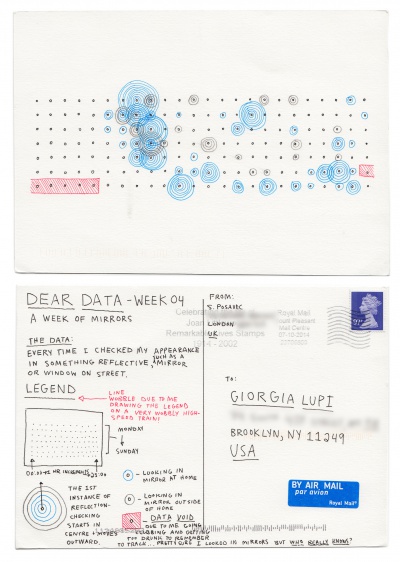 DEAR DATA - WEEK 04
A WEEK OF MIRRORS
THE DATA:
EVERY TIME I CHECKED MY APPEARANCE
IN SOMETHING REFLECTIVE, SUCH AS A MIRROR
OR WINDOW ON STREET.
LEGEND
LINE
WOBBLE DUE TO ME
DRAWING THE LEGEND
ON A VERY WOBBLY HIGH-
SPEED TRAIN!
MONDAY
SUNDAY
HR INCREMENTS
THE 1ST
INSTANCE OF
REFLECTION-
CHECKING
STARTS IN
CENTRE + MOVES
OUTWARD.
- LOOKING IN
MIRROR AT HOME
- LOOKING IN
MIRROR OUTSIDE
OF HOME
- DATA VOID
DUE TO ME GOING
CLUBBING AND GETTING
TOO DRUNK TO REMEMBER
TO TRACK... PRETTY SURE I LOOKED IN MIRRORS BUT WHO REALLY KNOWS?
FROM:
S. POSAVEC
LONDON
UK
Royal Mail
Mount Pleasant
Mail Centre
07-10-2014
Remarkable Lives Stamps
TO:
GIORGIA LUPI
BROOKLYN, NY 11249
USA
BY AIR MAIL
par avion
Royal Mail